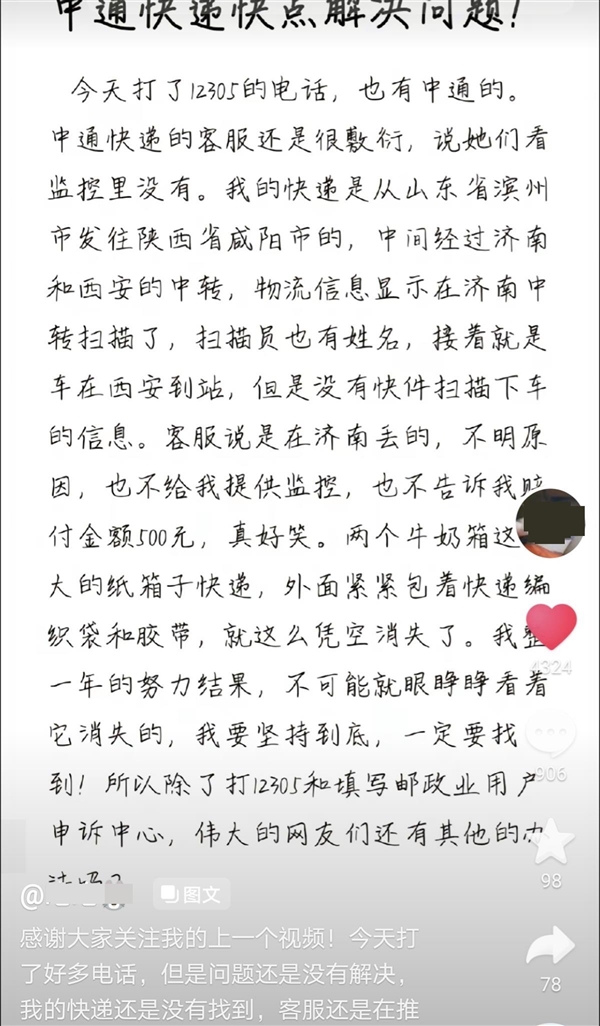 中通快递快点解决问题！
今天打了12305的电话，也有中通的。
中通快递的客服还是很敷衍，说她们看
监控里没有。我的快递是从山东省滨州
市发往陕西省咸阳市的，中间经过济南
和西安的中转，物流信息显示在济南中
转扫描了，扫描员也有姓名，接着就是
车在西安到站，但是没有快件扫描下车
的信息。客服说是在济南丢的，不明原
因，也不给我提供监控，也不告诉我赔
付金额500元，真好笑。两个牛奶箱这
大的纸箱子快递，外面紧紧包着快递编
织袋和胶带，就这么凭空消失了。我整
一年的努力结果，不可能就眼睁睁看着
它消失的，我要坚持到底，一定要找
到！所以除了打12305和填写邮政业用户
申诉中心，伟大的网友们还有其他的办
法吗？
4324
906
98
78
@
图文
感谢大家关注我的上一个视频！今天打
了好多电话，但是问题还是没有解决，
我的快递还是没有找到，客服还是在推